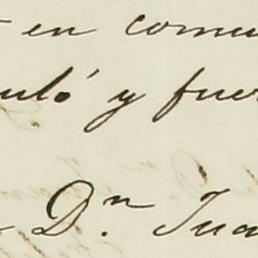 en comu
uló y fuer
Dn Jua